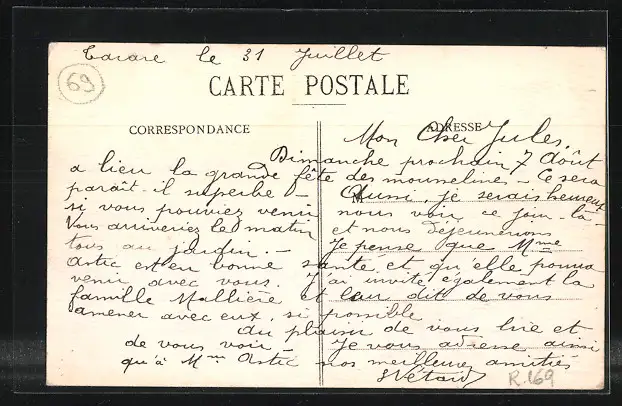 Tarare le 31 Juillet
69
CARTE POSTALE
CORRESPONDANCE
ADRESSE
Mon Cher Jules,
Dimanche prochain 7 Août
a lieu la grande fête des mousselines - Ce sera
paraît-il superbe - Aussi, je serais heureux
M
si vous pouviez venir nous voir ce jour-là
Vous arriveriez le matin et nous déjeunerions
tous au jardin. - Je pense que Mme
Astic est en bonne santé et qu'elle pourra
venir avec vous. J'ai invité également la
famille Mallière et leur dit de vous
amener avec eux, si possible
au plaisir de vous lire et
de vous voir - Je vous adresse ainsi
qu'à Mme Astic nos meilleures amitiés
R.169